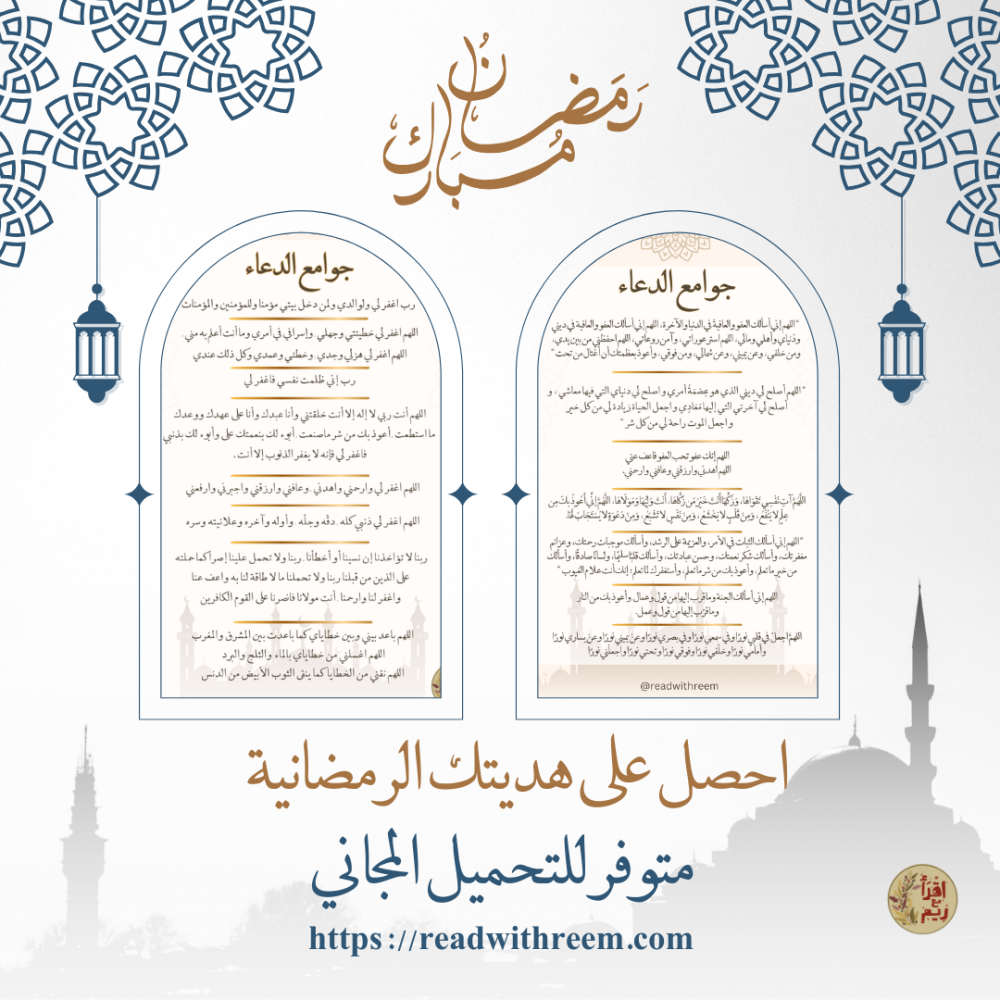 رَمَضَان
مُبَارَك
جوامع الدعاء
"اللهم إني أسألك العفو والعافية في الدنيا والآخرة، اللهم إني أسألك العفو والعافية في ديني
ودنياي وأهلي ومالي، اللهم استر عوراتي، وآمن روعاتي، اللهم احفظني من بين يدي،
ومن خلفي، وعن يميني، وعن شمالي، ومن فوقي، وأعوذ بعظمتك أن أغتال من تحت"
"اللهم أصلح لي ديني الذي هو عصمة أمري و اصلح لي دنياي التي فيها معاشي، و
أصلح لي آخرتي التي إليها مَعَادِي و اجعل الحياة زيادة لي من كل خير
و اجعل الموت راحة لي من كل شر"
اللهم إنك عفو تحب العفو فاعف عني
اللهم أهدني وارزقني وعافني وارحمني.
اللَّهُمَّ آتِ نَفْسِي تَقْوَاهَا، وَزَكِّهَا أَنْتَ خَيْرُ مَن زَكَّاهَا، أَنْتَ وَلِيُّهَا وَمَوْلَاهَا، اللَّهُمَّ إِنِّي أَعُوذُ بِكَ مِن
عِلْمٍ لا يَنْفَعُ، وَمِنْ قَلْبٍ لا يَخْشَعُ، وَمِنْ نَفْسٍ لا تَشْبَعُ، وَمِنْ دَعْوَةٍ لا يُسْتَجَابُ لَهَا.
"اللهم إني أسألك الثبات في الأمر، والعزيمة على الرشد، وأسألك موجبات رحمتك، وعزائم
مغفرتك، وأسألك شكر نعمتك، وحسن عبادتك، وأسألك قلبًا سليمًا، ولسانًا صادقًا، وأسألك
من خير ما تعلم، وأعوذ بك من شر ما تعلم، وأستغفرك لما تعلم؛ إنك أنت علام الغيوب"
اللهم إني أسألك الجنة وما قرب إليها من قول وعمل، وأعوذ بك من النار
وما قرب إليها من قول وعمل.
اللهم اجعل في قلبي نورًا وفي سمعي نورًا وفي بصري نورًا وعن يميني نورًا وعن يساري نورًا
وأمامي نورًا وخلفي نورًا وفوقي نورًا وتحتي نورًا واجعلني نورًا
@readwithreem
جوامع الدعاء
رب اغفر لي ولوالدي ولمن دخل بيتي مؤمنا وللمؤمنين والمؤمنات
اللهم اغفر لي خطيئتي وجهلي. وإسرافي في أمري وما أنت أعلم به مني
اللهم اغفر لي هزلي وجدي. وخطئي وعمدي وكل ذلك عندي
رب إني ظلمت نفسي فاغفر لي
اللهم أنت ربي لا إله إلا أنت خلقتني وأنا عبدك وأنا على عهدك ووعدك
ما استطعت .أعوذ بك من شر ما صنعت .أبوء لك بنعمتك على وأبوء لك بذنبي
فاغفر لي فإنه لا يغفر الذنوب إلا أنت.
اللهم اغفر لي وارحمني واهدني. وعافني وارزقني واجبرني وارفعني
اللهم اغفر لي ذنبي كله. دقَّه وجلَّه. وأوله وآخره وعلانيته وسره
ربنا لا تؤاخذنا إن نسينا أو أخطأنا. ربنا ولا تحمل علينا إصرا كما حملته
على الذين من قبلنا ربنا ولا تحملنا ما لا طاقة لنا به واعف عنا
واغفر لنا وارحمنا. أنت مولانا فانصرنا على القوم الكافرين
اللهم باعد بيني وبين خطاياي كما باعدت بين المشرق والمغرب
اللهم اغسلني من خطاياي بالماء والثلج والبرد
اللهم نقني من الخطايا كما ينقى الثوب الأبيض من الدنس
احصل على هديتك الرمضانية
متوفر للتحميل المجاني
https://readwithreem.com
اقْرَأ
مع
ريم